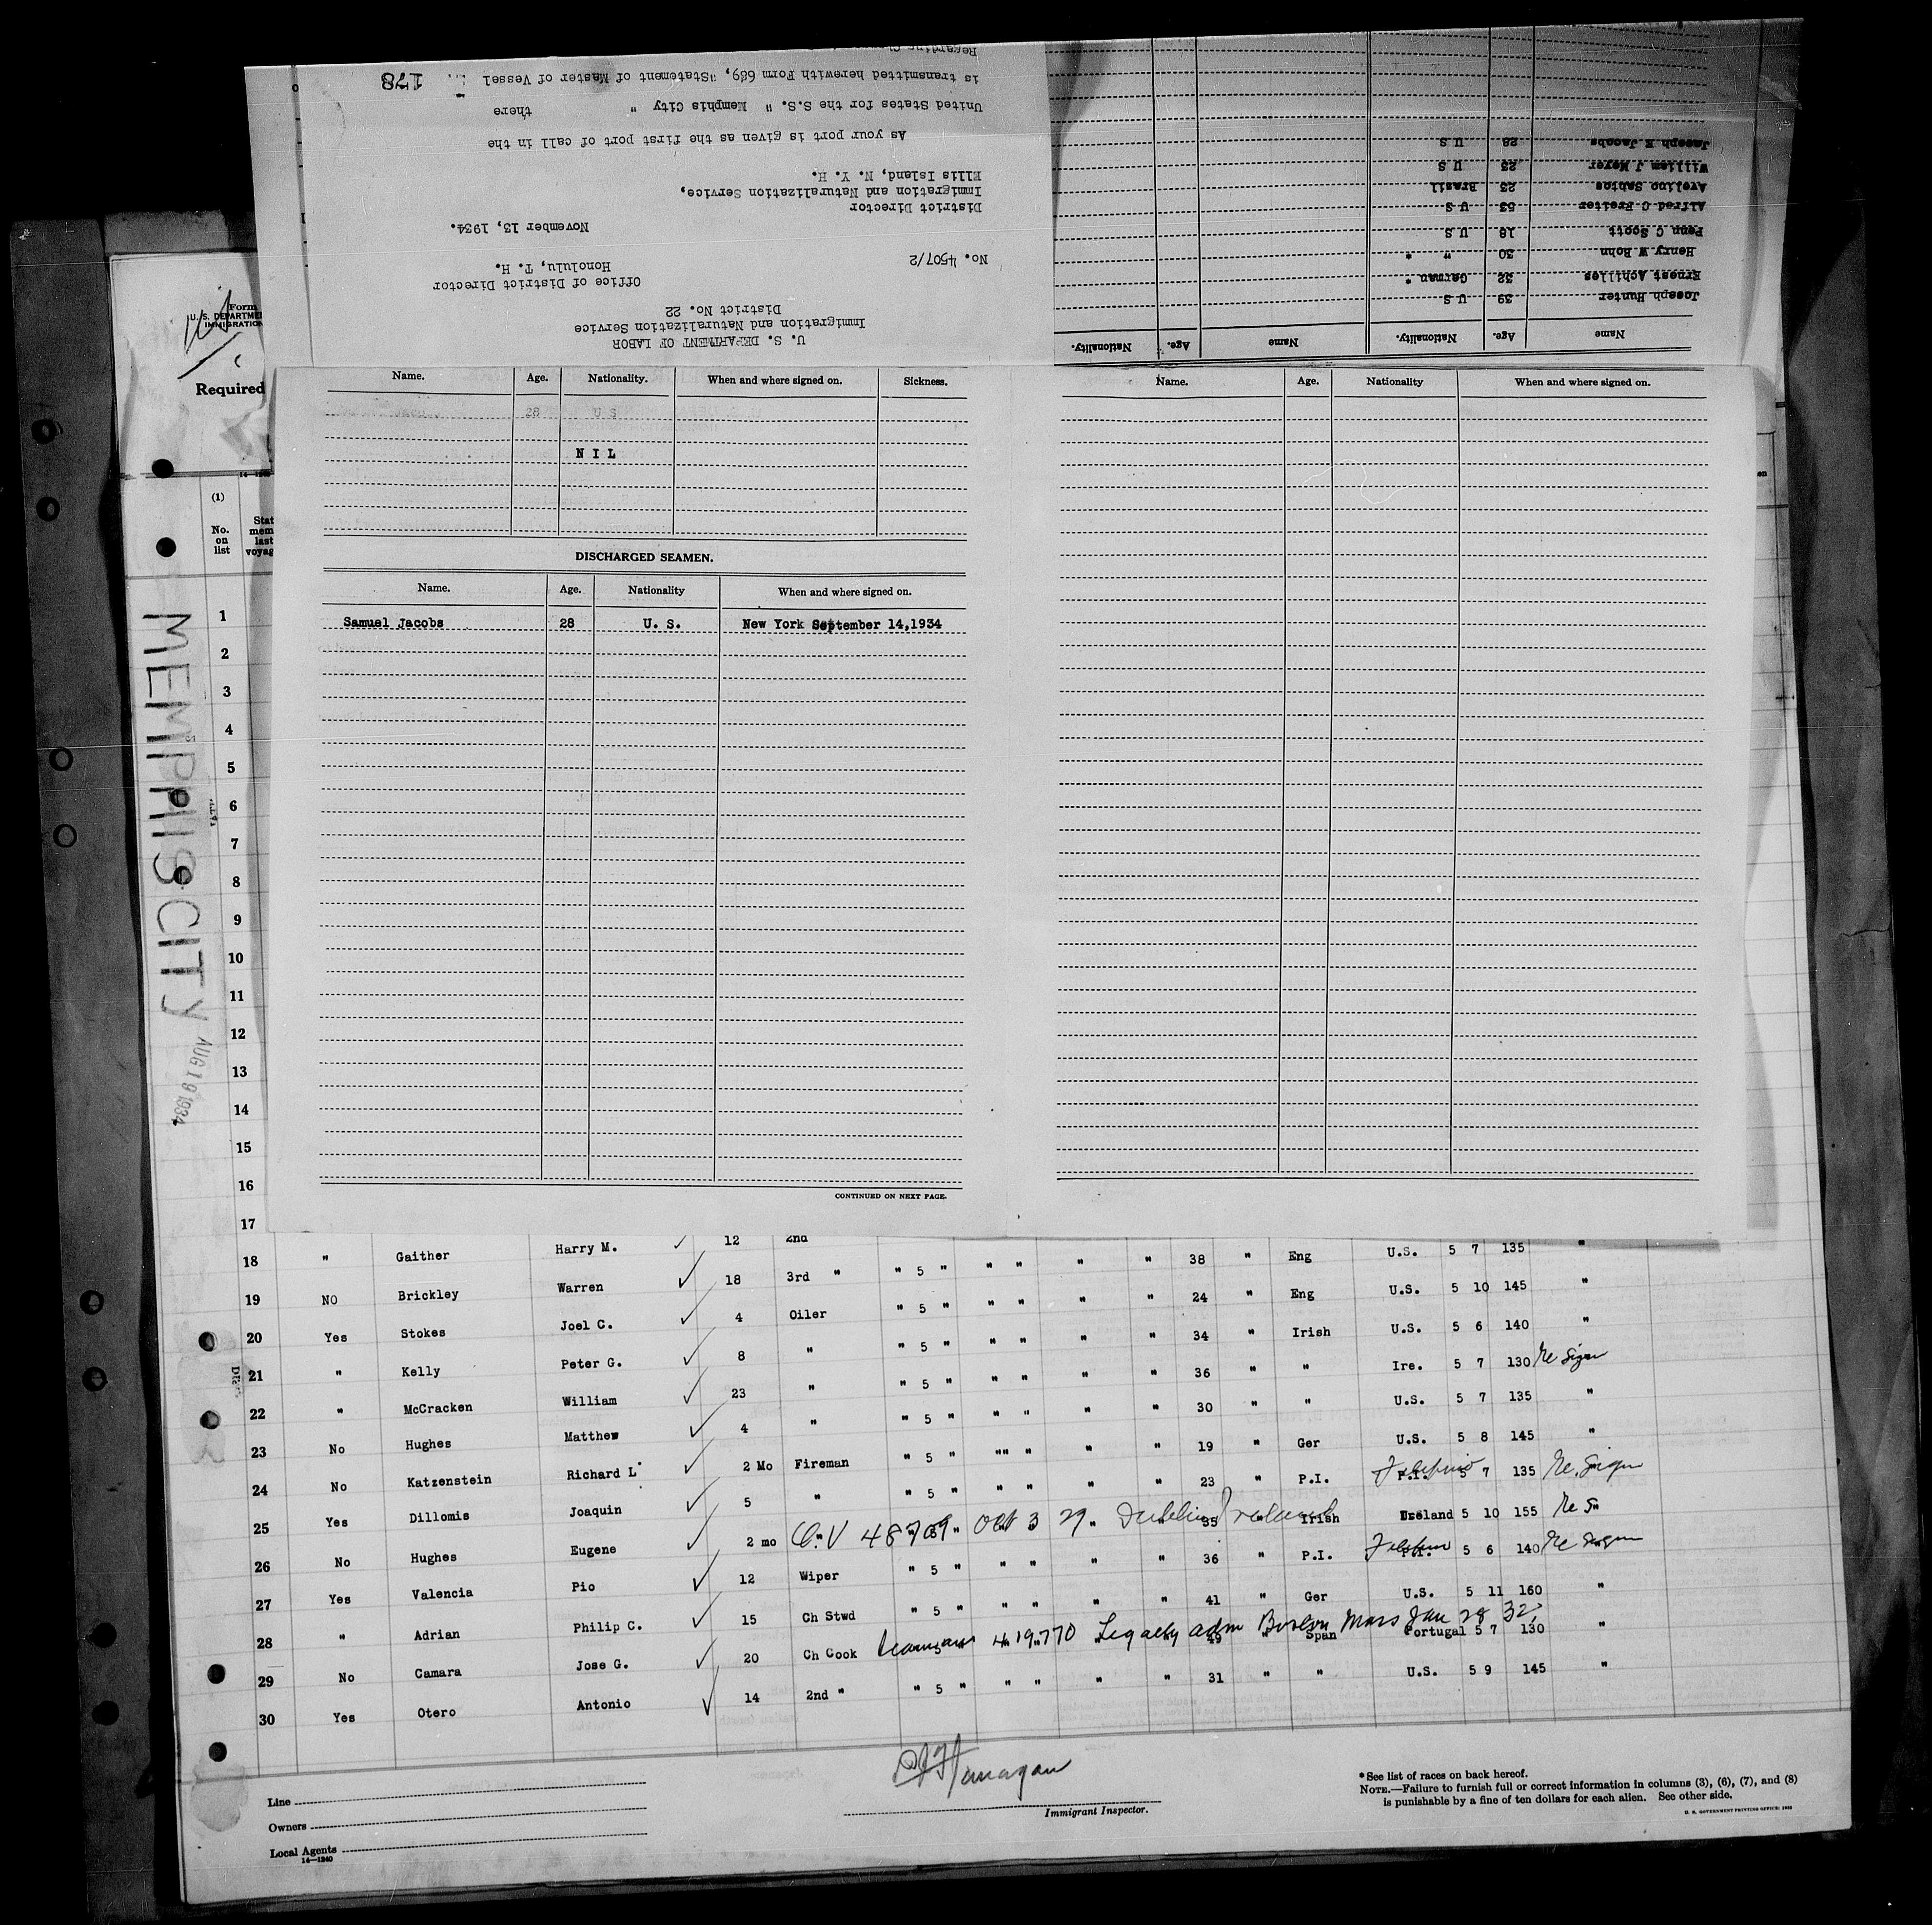 178
Regarding
is transmitted herewith Form 689, "Statement of Master of Vessel
United States for the S.S. " Memphis City " there
As your port is given as the first port of call in the
Ellis Island, N. Y. H.
Immigration and Naturalization Service,
District Director
November 13, 1934.
No. 4507/2
Honolulu, T. H.
Office of District Director
District No. 22
Immigration and Naturalization Service
U. S. DEPARTMENT OF LABOR
Joseph E Jacobs 28 U S
William J Meyer 23 U S
Avelino Santos 23 Brazil
Alfred C Freiter 53 U S
Penn C Scott 18 U S
Henry W Bohn 30 " *
Ernest Achilles 32 German *
Joseph Hunter 39 U S
Name Age. Nationality. Name Age. Nationality.
Form
U. S. DEPARTME
IMMIGRATION
Required
14—1240
(1)
No. on list
Stat
mem
last
voyag
Name. Age. Nationality. When and where signed on. Sickness.
28 U S
NIL
DISCHARGED SEAMEN.
Name. Age. Nationality When and where signed on.
Samuel Jacobs 28 U. S. New York September 14,1934
CONTINUED ON NEXT PAGE.
Name. Age. Nationality When and where signed on.
MEMPHIS CITY
AUG 19 1934
1
2
3
4
5
6
7
8
9
10
11
12
13
14
15
16
17
18 " Gaither Harry M. 12 2nd
19 NO Brickley Warren 18 3rd " " 5 " " " " " 38 " Eng U.S. 5 7 135 "
20 Yes Stokes Joel C. 4 Oiler " 5 " " " " " 24 " Eng U.S. 5 10 145 "
21 " Kelly Peter G. 8 " " 5 " " " " " 34 " Irish U.S. 5 6 140 "
22 " McCracken William 23 " " 5 " " " " " 36 " " Ire. 5 7 130 Re Sign
23 No Hughes Matthew 4 " " 5 " " " " " 30 " " U.S. 5 7 135 "
24 No Katzenstein Richard L 2 Mo Fireman " 5 " "" " " " 19 " Ger U.S. 5 8 145 "
25 Yes Dillomis Joaquin 5 " " 5 " " " " " 23 " P.I. Filipino 5 7 135 Re Sign
26 No Hughes Eugene 2 mo C.V 48709 Oct 3 29 Dublin Ireland 35 Irish Ireland 5 10 155 Re S
27 Yes Valencia Pio 12 Wiper " 5 " " " " " 36 " P.I. Filipino 5 6 140 Re Sign
28 " Adrian Philip C. 15 Ch Stwd " 5 " " " " " 41 " Ger U.S. 5 11 160 "
29 No Camara Jose G. 20 Ch Cook 419770 Legally adm Boston Mass Jan 28 32, 49 " Span Portugal 5 7 130 "
30 Yes Otero Antonio 14 2nd " " 5 " " " " " 31 " " U.S. 5 9 145 "
Line
Owners
Local Agents
14—1240
Immigrant Inspector.
*See list of races on back hereof.
NOTE.—Failure to furnish full or correct information in columns (3), (6), (7), and (8)
is punishable by a fine of ten dollars for each alien. See other side.
U. S. GOVERNMENT PRINTING OFFICE: 1932